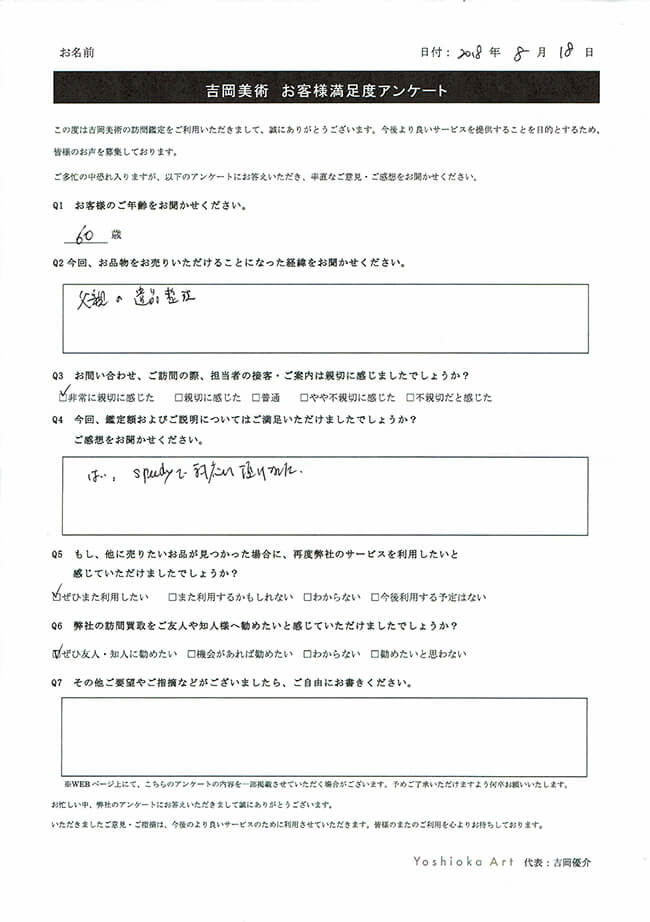 お名前 日付： 2018 年 8 月 18 日
吉岡美術 お客様満足度アンケート
この度は吉岡美術の訪問鑑定をご利用いただきまして、誠にありがとうございます。今後より良いサービスを提供することを目的とするため、
皆様のお声を募集しております。
ご多忙の中恐れ入りますが、以下のアンケートにお答えいただき、率直なご意見・ご感想をお聞かせください。
Q1 お客様のご年齢をお聞かせください。
60 歳
Q2 今回、お品物をお売りいただけることになった経緯をお聞かせください。
父親の遺品整理
Q3 お問い合わせ、ご訪問の際、担当者の接客・ご案内は親切に感じましたでしょうか？
☑非常に親切に感じた □親切に感じた □普通 □やや不親切に感じた □不親切だと感じた
Q4 今回、鑑定額およびご説明についてはご満足いただけましたでしょうか？
ご感想をお聞かせください。
はい、speedyで対応して頂けました。
Q5 もし、他に売りたいお品が見つかった場合に、再度弊社のサービスを利用したいと
感じていただけましたでしょうか？
☑ぜひまた利用したい □また利用するかもしれない □わからない □今後利用する予定はない
Q6 弊社の訪問買取をご友人や知人様へ勧めたいと感じていただけましたでしょうか？
☑ぜひ友人・知人に勧めたい □機会があれば勧めたい □わからない □勧めたいと思わない
Q7 その他ご要望やご指摘などがございましたら、ご自由にお書きください。
※WEBページ上にて、こちらのアンケートの内容を一部掲載させていただく場合がございます。予めご了承いただけますよう何卒お願いいたします。
お忙しい中、弊社のアンケートにお答えいただきまして誠にありがとうございます。
いただきましたご意見・ご指摘は、今後のより良いサービスのために利用させていただきます。皆様のまたのご利用を心よりお待ちしております。
Yoshioka Art 代表：吉岡優介